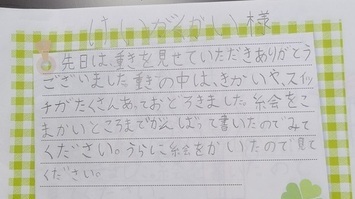 けいがくかい様
先日は、重きを見せていただきありがとう
ございました。重きの中は、きかいや、スイッ
チがたくさんあっておどろきました。絵をこ
まかいところまでがんばって書いたのでみて
ください。うらに絵をかいたので見て
ください。